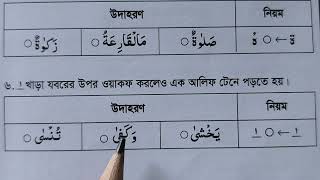 উদাহরণ নিয়ম
زَكٰوةٌ ○ مَالْقَارِعَةُ ○ صَلٰوةٌ ○ ة ← ○ ه
৬. খাড়া যবরের উপর ওয়াকফ করলেও এক আলিফ টেনে পড়তে হয়।
উদাহরণ নিয়ম
تُنْسٰى ○ وَكَفٰى ○ يَخْشٰى ○